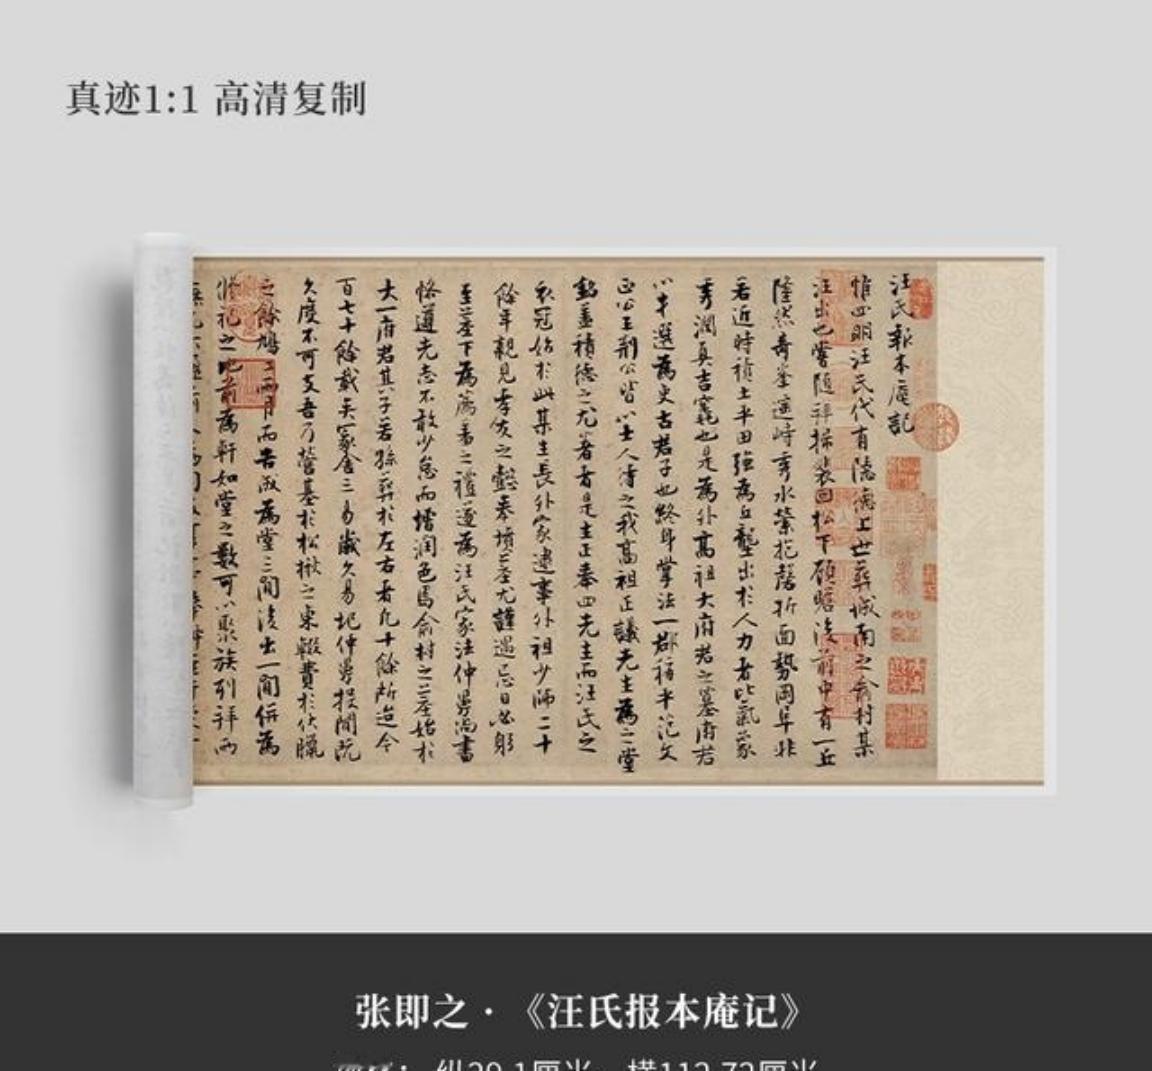 真迹1:1 高清复制
汪氏報本庵記
惟四明汪氏代有隱德上世葬城南之俞村某
汪出也嘗隨拜掃裴回松下顧瞻後前中有一丘
隆然奇峯遠峙秀水縈抱磬折面勢岡阜非
若近時積土半田強為丘壟出於人力者比氣象
秀潤真吉竁也是為外高祖大府君之墓府君
以才選為吏古君子也終身掌法一郡稱平汜文
正公王荊公皆以士人待之我高祖正議先生為之堂
銘蓋積德之尤著者是生正奉四先生而汪氏之
衣冠始於此某生長外家逮事外祖少師二十
餘年親見孝友之懿奉墳塋尤謹遇忌日必躬
至墓下為薦羞之禮遂為汪氏家法仲舅尚書
恪遵先志不敢少怠而增潤色焉俞村之塋始於
大一府君其子若孫葬於左右者凡十餘所迨今
百七十餘載矣冢舍三易歲久易圮仲舅授閒既
久度不可支吾乃營基於松楸之東輟費於伏臘
之餘鳩工兩月而告成為堂三間後出一間併為
修祀之地前為軒如堂之數可以聚族列拜而
张即之·《汪氏报本庵记》
纵29.1厘米 横112.72厘米